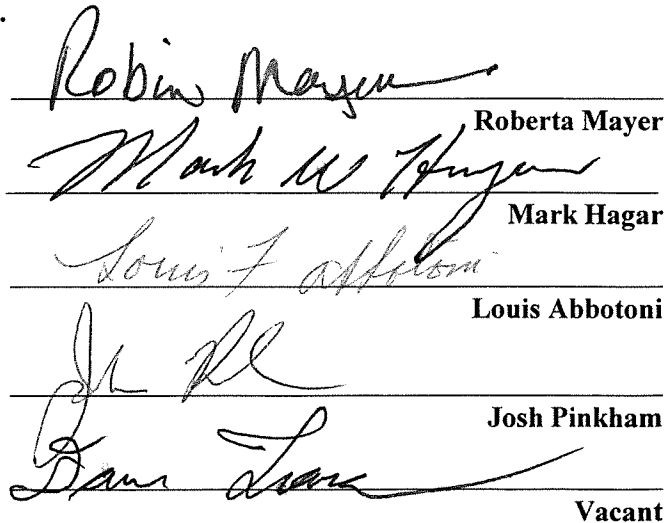 Robin Mayer
Roberta Mayer
Mark W Hagar
Mark Hagar
Louis F Abbotoni
Louis Abbotoni
Josh Pinkham
Vacant